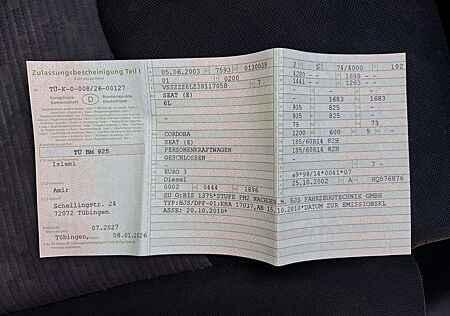 Zulassungsbescheinigung Teil I
(Fahrzeugschein)
TÜ-K-0-008/26-00127
Europäische Gemeinschaft D Bundesrepublik Deutschland
TÜ BM 925
Islami
Amir
Schellingstr. 24
72072 Tübingen
07.2027
Tübingen, 08.01.2026
05.06.2003 7593 0130039
01 0200
VSSZZZ6LZ3R117058 7
SEAT (E)
6L
CORDOBA
SEAT (E)
PERSONENKRAFTWAGEN
GESCHLOSSEN
EURO 3
Diesel
0002 0444 1896
ZU G:BIS 1375*STUFE PM2 NACHGER.M. HJS FAHRZEUGTECHNIK GMBH
TYP:HJS/DPF-01,KBA 17037,AB 15.10.2010*DATUM ZUR EMISSIONSKL
ASSN: 20.10.2010*
2 74/4000 192
4280 - 1698 -
1441 - 1263 - -
- - - - -
- 1683 1683
935 825 - -
935 825 - -
79 73
1200 600 5 -
185/60R14 82H
185/60R14 82H
- 7 -
e9*98/14*0041*07
25.10.2002 A HQ876876